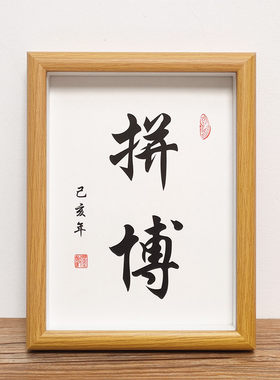 拼博
己亥年